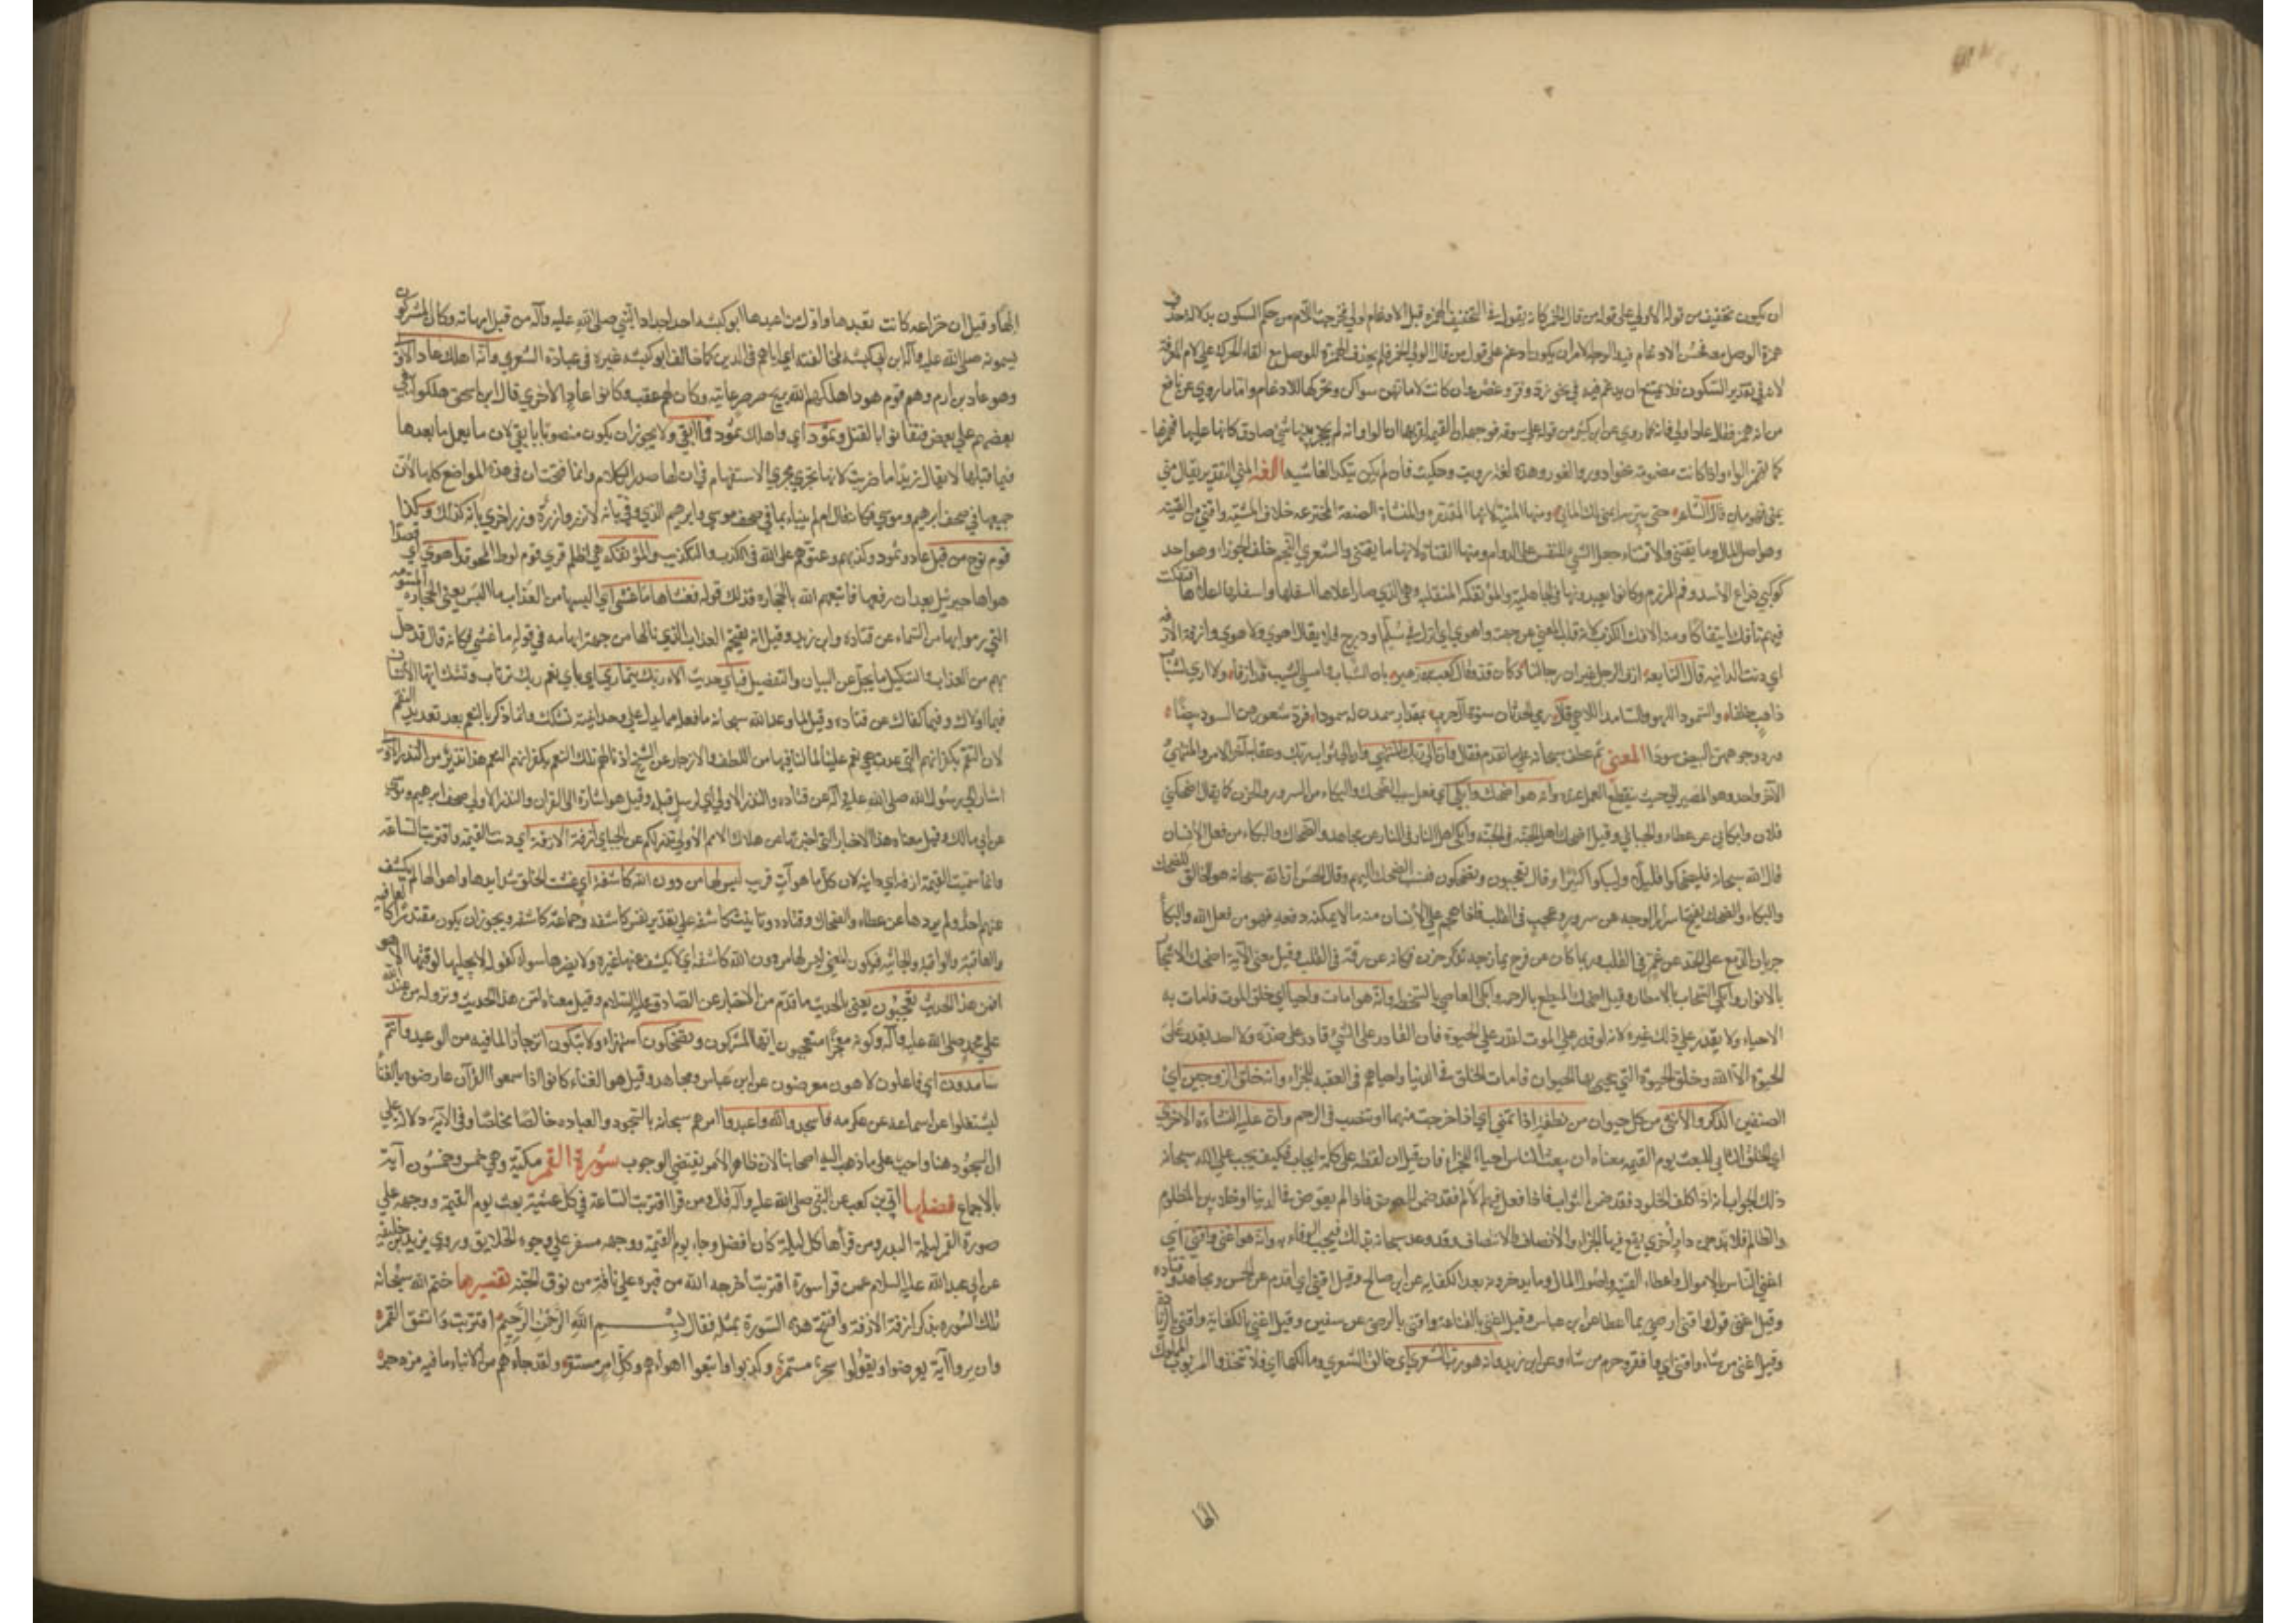 ان يكون تخفيف من قوله الأولي علي قوله من قال الحمر كانه يقول في التخفيف الهمزة قبل الادغام لولي فخرجت اللام من حكم السكون بدلالة حذف
همزة الوصل معه فحسن الادغام فيه والوجه الاخر ان يكون ادغم علي قول من قال الولي الحمر فلم يحذف الهمزة للوصل مع القاء الحركة علي لام المعرفة
لانه في تقدير السكون فلا يمتنع ان يدغم فيه في نحو رد وفر وعض وان كانت لاماتهن سواكن وتحركها للادغام واما ما روي عن نافع
من انه همز فقال عاد لولي فانه كما روي عن ابن كثير من قوله علي سوقه فوجهه ان
كما تهمز الواو اذا كانت مضمومة نحو ادور والغور وهذه لغة رويت وحكيت فان لم يكن بتلك الفاشية اللغة المني التقدير يقال مني
يمني فهو مان قال الشاعر حتي تبين ما يمني لك الماني ومنها المنية لانها المقدرة والنشأة الصنعة المخترعة خلاف المشية واقني من القنية
وهو اصل المال وما يقتني والاقتناء جعل الشيء للنفس علي الدوام ومنها القناة لانها مما يقتني والشعري النجم خلف الجوزاء وهو احد
كوكبي ذراع الأسد وقم المرزم وكانوا يعبدونها في الجاهلية والمؤتفكة المنقلبة وهي التي صار اعلاها اسفلها واسفلها اعلاها ائتفكت
فهم تأفك ايتفاكا ومنه الافك الكذب لانه قلب المعني عن جهته واهوي اي انزل في سلم او درج فلا يقال اهوي ولا هوي وازفت الازفة
اي دنت الدانية قال النابغة ازف الترحل غير ان ركابنا وكان قد وقال كعب بن زهير بان الشباب وامسي الشيب قد ازفا ولا اري لشباب
ذاهب خلفا والسمود اللهو والسامد اللاهي قال رمي الحدثان نسوة آل حرب بمقدار سمدن له سمودا فرد شعورهن السود بيضا
ورد وجوههن البيض سودا المعني ثم عطف سبحانه علي ما تقدم فقال وان الي ربك المنتهي وان الي ثواب ربك وعقابه آخر الامر والمنتهي
الآخر واحد وهو المصير الي حيث ينقطع العمل عنده وانه هو اضحك وابكي اي فعل سبب الضحك والبكاء من السرور والحزن كما يقال اضحكني
فلان وابكاني عن عطاء والجبائي وقيل اضحك اهل الجنة في الجنة وابكي اهل النار في النار عن مجاهد والضحاك والبكاء من فعل الانسان
قال الله سبحانه فليضحكوا قليلا وليبكوا كثيرا وقال تعجبون وتضحكون فنسب الضحك اليهم وقال الحسن ان الله سبحانه هو الخالق للضحك
والبكاء والضحك تفتح اسرار الوجه عن سرور وعجب في القلب فاذا هجم علي الانسان منه ما لا يمكنه دفعه فهو من فعل الله والبكاء
جريان الدمع علي الخد عن غم في القلب وربما كان عن فرح يمازجه تذكر حزن فكانه عن رقة في القلب وقيل معني الآية اضحك الاشجار
بالانوار وابكي السحاب بالامطار وقيل اضحك المطيع بالرحمة وابكي العاصي بالسخط وانه هو امات واحيا اي خلق الموت فامات به
الاحياء ولا يقدر علي ذلك غيره لانه لو قدر علي الموت لقدر علي الحيوة فان القادر علي الشيء قادر علي ضده ولا احد يقدر علي
الحيوة الا الله وخلق الحيوة التي يحيي بها الحيوان فامات الخلق في الدنيا واحياهم في العقبي للجزاء وانه خلق الزوجين اي
الصنفين الذكر والأنثي من كل حيوان من نطفة اذا تمني اي اذا خرجت منهما وتنصب في الرحم وان عليه النشأة الاخري
اي الخلق الثاني للبعث يوم القيمة معناه ان يبعث الناس احياء للجزاء فان قيل ان لفظة علي كلمة ايجاب فكيف يجب علي الله سبحانه
ذلك الجواب انه اذا كلف الخلق فقد ضمن الثواب فاذا فعل فيهم الالم فقد ضمن العوض فاذا لم يعوض في الدنيا وخلي بين المظلوم
والظالم فلا بد من دار اخري يقع فيها الجزاء والانصاف والانتصاف وقد وعد سبحانه بذلك فيجب الوفاء به وانه هو اغني واقني اي
اغني الناس بالاموال واعطاء القنية واصول المال وما يدخرونه بعد الكفاية عن ابي صالح وقيل اقني اي اخدم عن الحسن ومجاهد وقتادة
وقيل اغني قول واقني ارضي بما اعطا عن ابن عباس وقيل اغني بالقناعة واقني بالرضي عن سفين وقيل اغني بالكفاية واقني بالزيادة
وقيل اغني من شاء واقني اي افقر وحرم من شاء وعن ابن زيد وانه هو رب الشعري اي خالق الشعري ومالكها اي فلا تتخذوا المربوب المملوك
الها
الها وقيل ان خزاعة كانت تعبدها واول من عبدها ابو كبشة احد اجداد النبي صلي الله عليه وآله من قبل امهاته وكان المشركون
يسمونه صلي الله عليه وآله ابن ابي كبشة لمخالفته اياهم في الدين كما خالف ابو كبشة غيره في عبادة الشعري وانه اهلك عادا الاولي
وهو عاد بن ارم وهم قوم هود اهلكهم الله بريح صرصر عاتية وكان لهم عقب وكانوا عادا الاخري قال ابن اسحق هلكوا ببغي
بعضهم علي بعض فتفانوا بالقتل وثمود اي واهلك ثمود فما ابقي ولا يجوز ان يكون منصوبا بابقي لان ما بعد ما لا يعمل
فيما قبلها لا يقال زيدا ما ضربت لانها تجري مجري الاستفهام في ان لها صدر الكلام وانما فتحت ان في هذه المواضع كلها لان
جميعها في صحف ابرهيم وموسي فكانه قال ام لم ينبأ بما في صحف موسي وابرهيم الذي وفي بانه لا تزر وازرة وزر اخري وبانه كذلك وكذا
قوم نوح من قبل عاد وثمود وكذبهم وعتوهم علي الله في الكذب والتكذيب والمؤتفكة هي اظلم قري قوم لوط المخوفة اهوي اي
هواها جبرئيل بعد ان رفعها فاتبعهم الله بالحجارة فذلك قوله فغشاها ما غشي اي البسها من العذاب ما البس يعني الحجارة المسومة
التي رموا بها من السماء عن قتادة وابن زيد وقيل انه تفخيم العذاب الذي نالها من جهة ابهامه في قوله ما غشي فكانه قال قد حل
بهم من العذاب والتنكيل ما يجل عن البيان والتفصيل فباي حديث آلاء ربك تتماري اي باي نعم ربك ترتاب وتشك ايها الانسان
فيما اولاك وفيما كفاك عن قتادة وقيل لما عد الله سبحانه ما فعله مما يدل علي وحدانيته تشكك وانما ذكره بالنعم بعد تعديد النقم
لان النقم التي عددت هي نعم علينا لما لنا فيها من اللطف والانزجار عن القبيح اذ نالهم تلك النقم بكفرانهم النعم هذا نذير من النذر الاولي
اشار الي رسول الله صلي الله عليه وآله عن قتادة والنذر الاولي اي ارسل قبله وقيل هو اشارة الي القران والنذر الاولي صحف ابرهيم وموسي
عن ابي مالك وقيل معناه هذه الاخبار التي اخبر بها عن هلاك الامم الاولي نذير لكم عن الجبائي ازفت الازفة اي دنت القيمة واقتربت الساعة
وانما سميت القيمة ازفة اي دانية لان كل ما هو آت قريب ليس لها من دون الله كاشفة اي غشيت الخلق شدايدها واهوالها لم يكشف
عنهم احد ولم يردها عن عطاء والضحاك وقتادة وتانيث كاشفة علي تقدير نفس كاشفة وجماعة كاشفة ويجوز ان يكون مقتدر اكالعافية
والعاقبة والواقية والخائنة فيكون المعني ليس لها من دون الله كاشفة اي لا يكشف عنها غيره ولا يظهرها سواه كقوله لا يجليها لوقتها الا هو
افمن هذا الحديث تعجبون يعني بالحديث ما تقدم من الاخبار عن الصادق عليه السلام وقيل معناه افمن هذا الحديث ونزوله من عند الله
علي محمد صلي الله عليه وآله وكونه معجزا متعجبون ايها المشركون وتضحكون استهزاء ولا تبكون انزجارا لما فيه من الوعيد وانتم
سامدون اي غافلون لاهون معرضون عن ابن عباس ومجاهد وقيل هو الغناء كانوا اذا سمعوا القرآن عارضوه بالغناء
ليشغلوا عن استماعه عن عكرمة فاسجدوا لله واعبدوا امرهم سبحانه بالسجود والعبادة خالصا مخلصا وفي الآية دلالة علي
ان السجود هنا واجب علي ما ذهب اليه اصحابنا لان ظاهر الأمر يقتضي الوجوب سورة القمر مكية وهي خمس وخمسون آية
بالاجماع فضلها ابي بن كعب عن النبي صلي الله عليه وآله قال ومن قرا اقتربت الساعة في كل عشية بعث يوم القيمة ووجهه علي
صورة القمر ليلة البدر ومن قرأها كل ليلة كان افضل وجاء يوم القيمة ووجهه مسفر علي وجوه الخلايق وروي يزيد بن خليفة
عن ابي عبد الله عليه السلام من قرا سورة اقتربت اخرجه الله من قبره علي ناقة من نوق الجنة تفسيرها ختم الله سبحانه
تلك السورة بذكر ازفة الازفة وافتتح هذه السورة بمثله فقال بسم الله الرحمن الرحيم اقتربت وانشق القمر
وان يروا آية يعرضوا ويقولوا سحر مستمر وكذبوا واتبعوا اهواءهم وكل امر مستقر ولقد جاءهم من الانباء ما فيه مزدجر